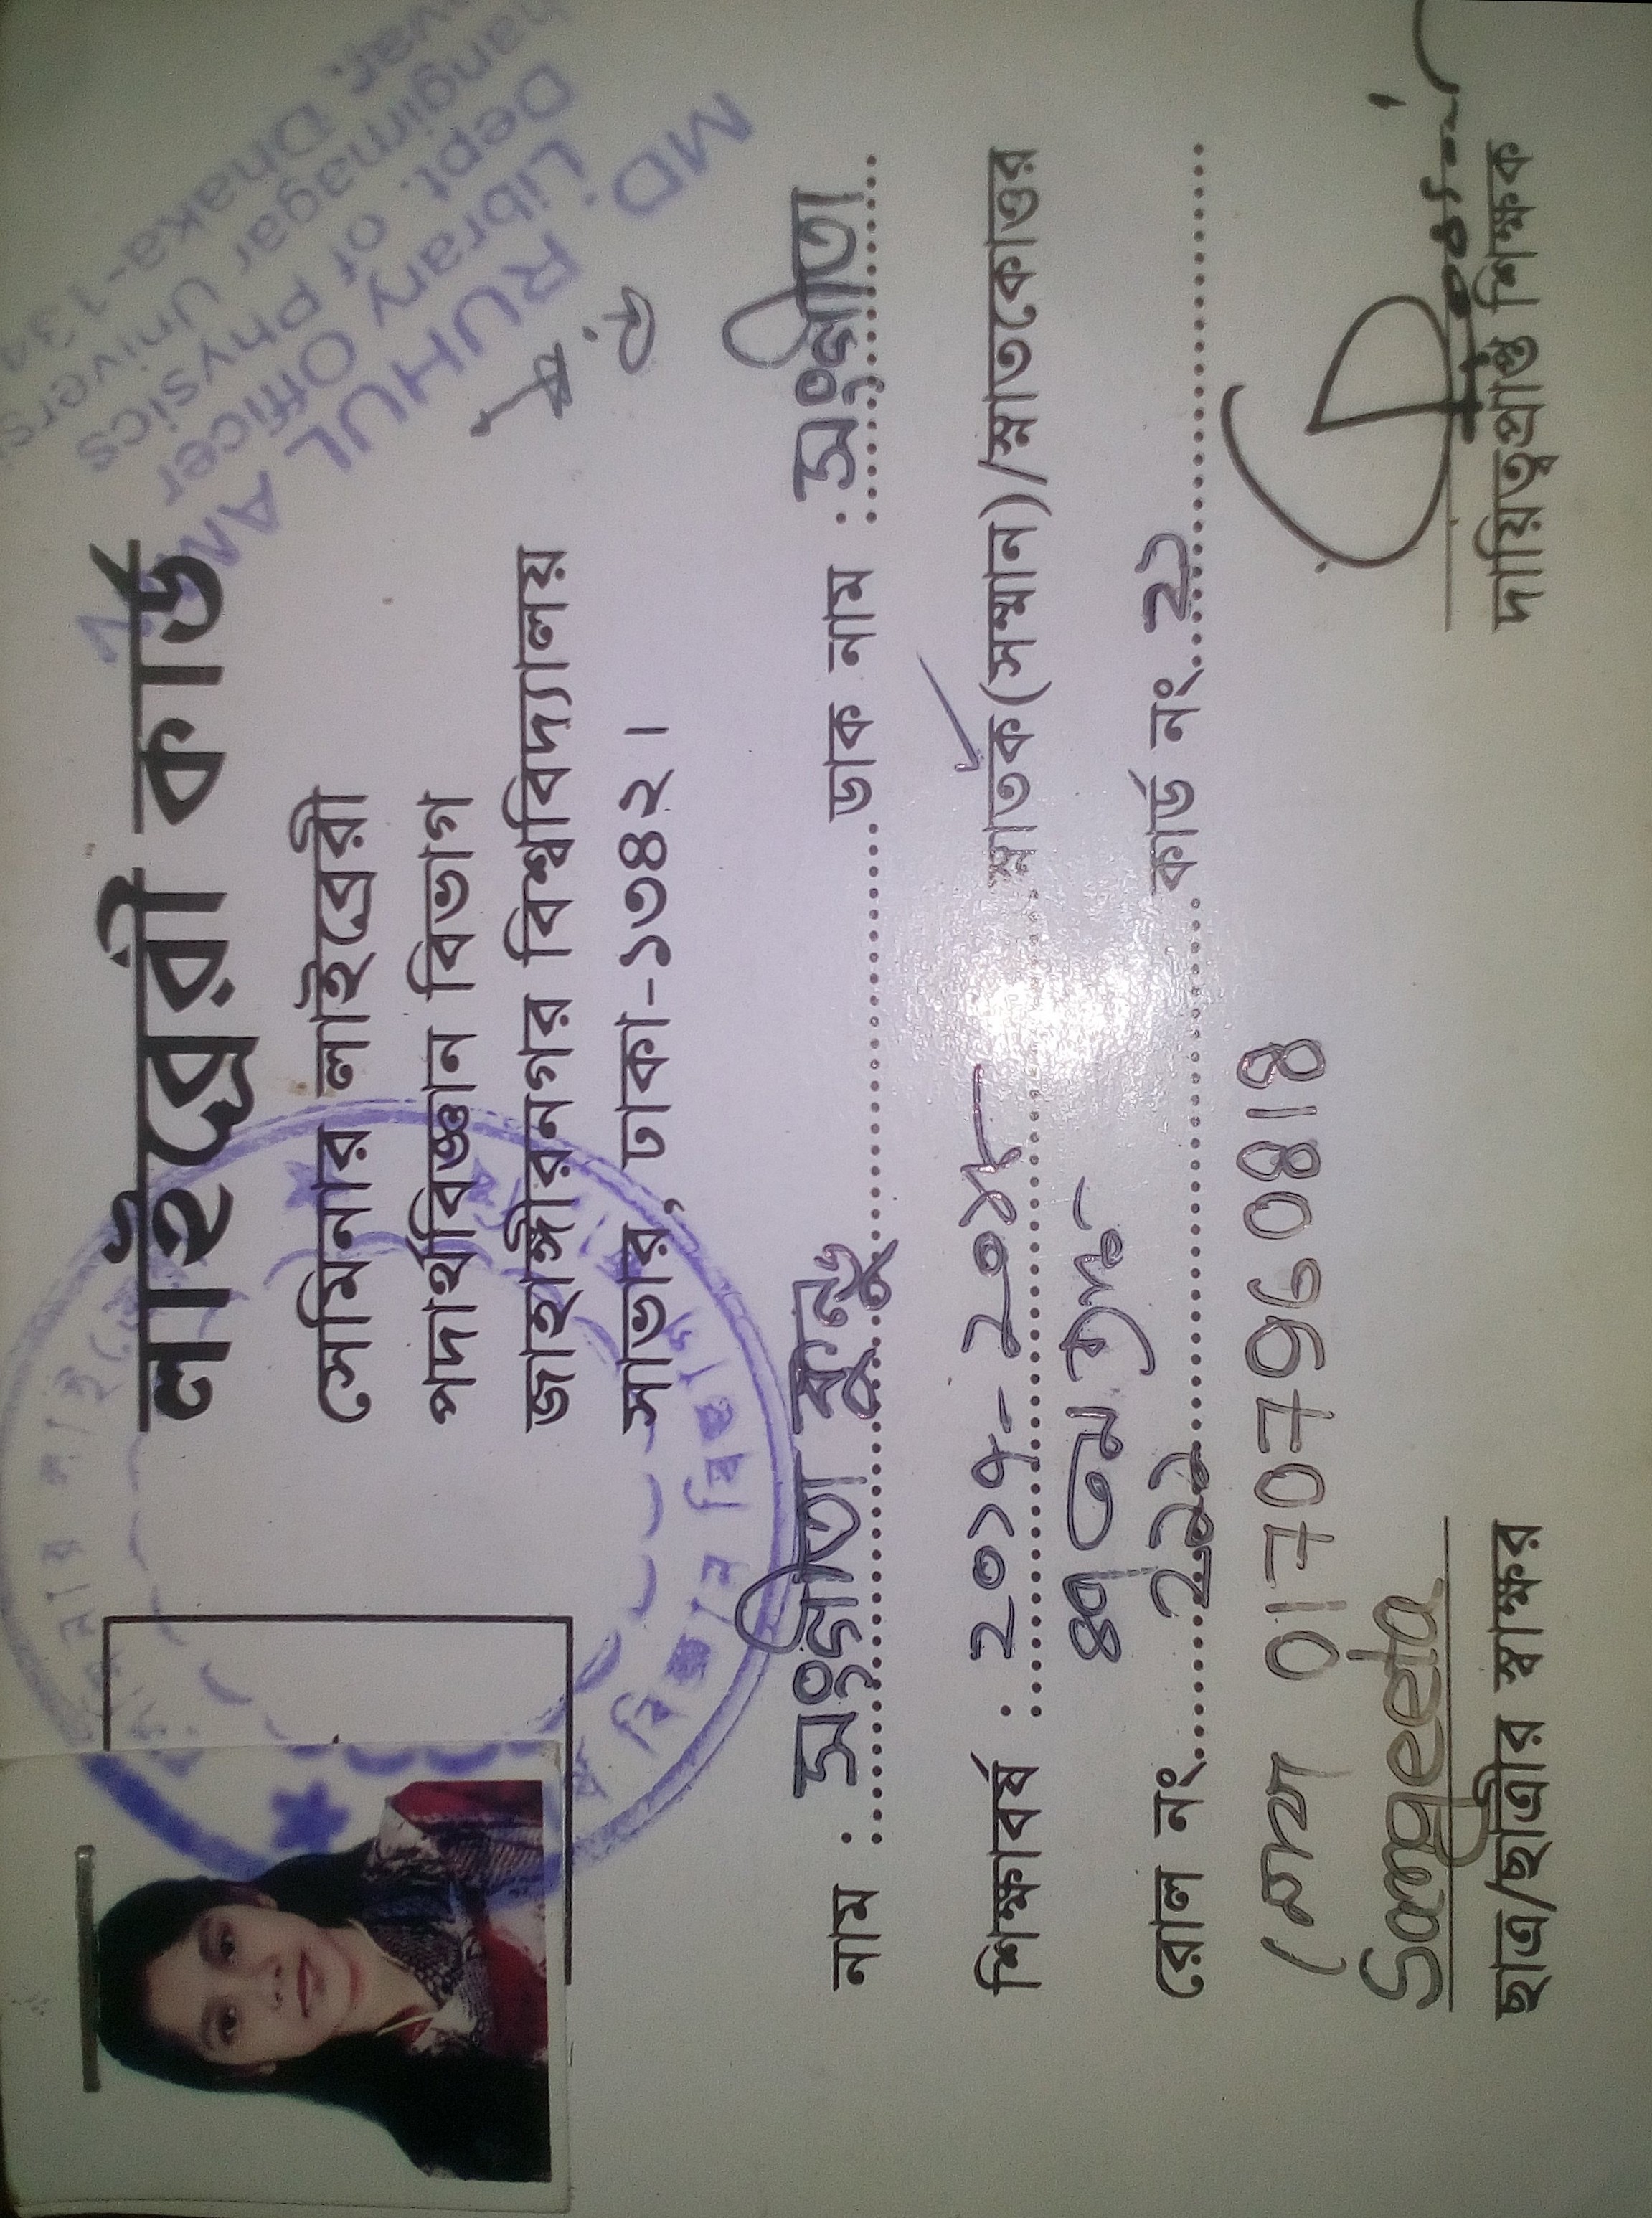 লাইব্রেরী কার্ড
সেমিনার লাইব্রেরী
পদার্থবিজ্ঞান বিভাগ
জাহাঙ্গীরনগর বিশ্ববিদ্যালয়
সাভার, ঢাকা-১৩৪২।
MD. RUHUL AMIN
Library Officer
Dept. of Physics
বিজ্ঞান বিভাগ
নাম : সংগীতা কুন্ডু ডাক নাম : সংগীতা
শিক্ষাবর্ষ : ২০১৭-২০১৮ স্নাতক(সম্মান)/স্নাতকোত্তর
৪৭ তম
রোল নং. ২২১ কার্ড নং. ২১
01707960818
Sangeeta
ছাত্র/ছাত্রীর স্বাক্ষর দায়িত্বপ্রাপ্ত শিক্ষক